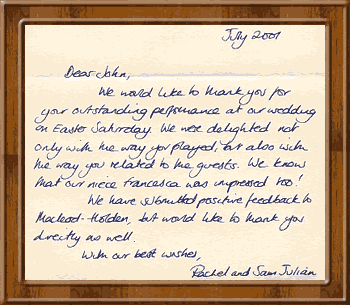 July 2001
Dear John,
We would like to thank you for
your outstanding performance at our wedding
on Easter Saturday. We were delighted not
only with the way you played, but also with
the way you related to the guests. We know
that our niece Francesca was impressed too!
We have submitted positive feedback to
Macleod-Holden, but would like to thank you
directly as well.
With our best wishes,
Rachel and Sam Julian